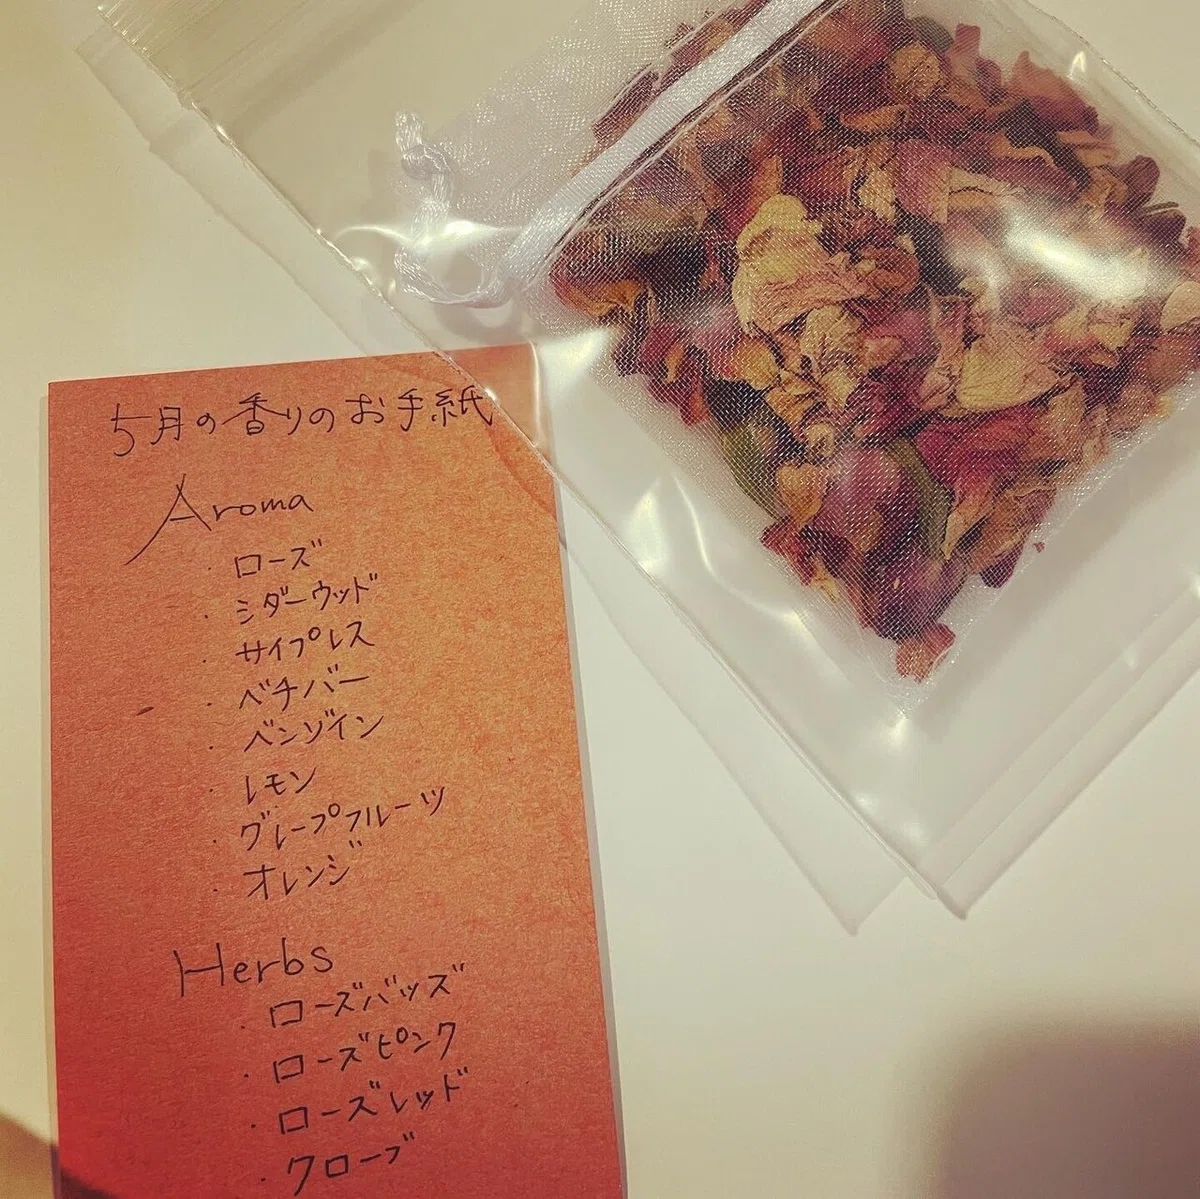 5月の香りのお手紙
Aroma
・ローズ
・シダーウッド
・サイプレス
・ベチバー
・ベンゾイン
・レモン
・グレープフルーツ
・オレンジ
Herbs
・ローズバッズ
・ローズピンク
・ローズレッド
・クローブ